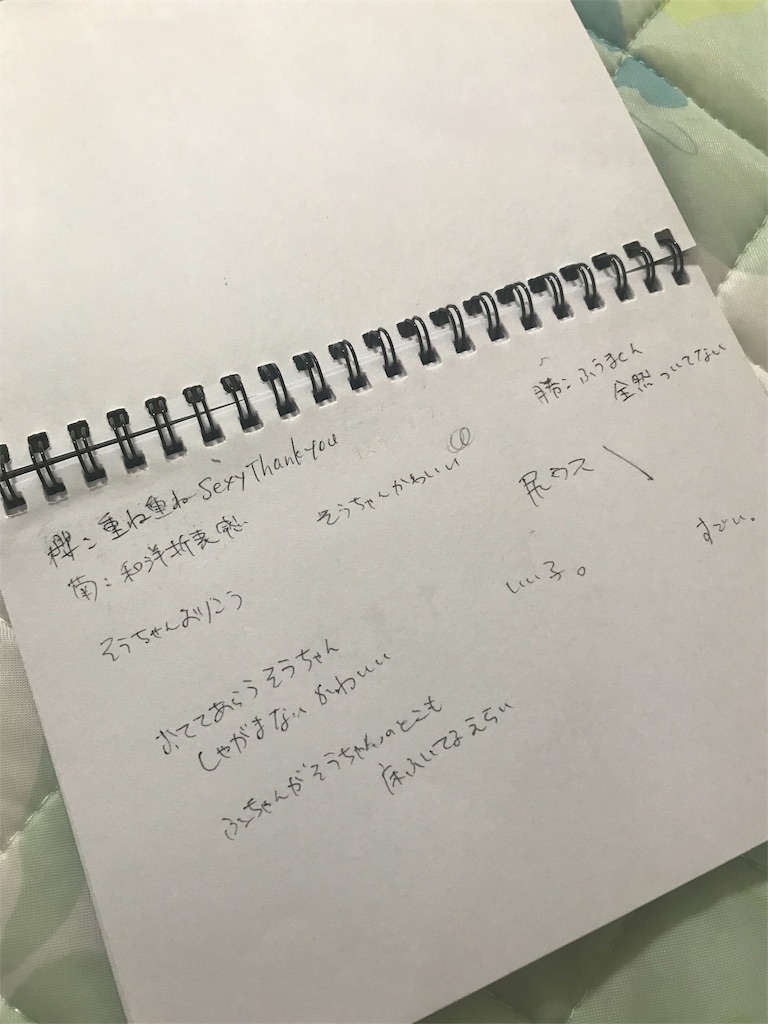 櫻：重ね重ねSexyThankyou
菊：和洋折衷感
そうちゃんかわいい
勝：ふうまくん
全然ついてない
尻クス
そうちゃんおりこう
いい子。
すごい。
おててあらうそうちゃん
しゃがまないかわいい
ふうちゃんがそうちゃんのとこも
床ふいてるえらい